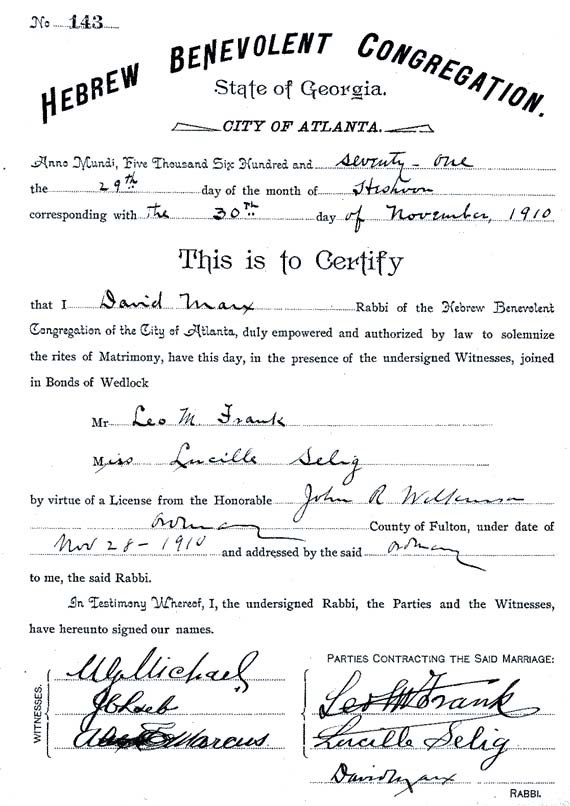 No 143
HEBREW BENEVOLENT CONGREGATION.
State of Georgia.
CITY OF ATLANTA.
Anno Mundi, Five Thousand Six Hundred and seventy-one
the 29th day of the month of Heshvon
corresponding with the 30th day of November, 1910
This is to Certify
that I David Marx Rabbi of the Hebrew Benevolent
Congregation of the City of Atlanta, duly empowered and authorized by law to solemnize
the rites of Matrimony, have this day, in the presence of the undersigned Witnesses, joined
in Bonds of Wedlock
Mr Leo M. Frank
Miss Lucille Selig
by virtue of a License from the Honorable John R Wilkinson
Ordinary County of Fulton, under date of
Nov 28-1910 and addressed by the said Ordinary
to me, the said Rabbi.
In Testimony Whereof, I, the undersigned Rabbi, the Parties and the Witnesses,
have hereunto signed our names.
WITNESSES.
Michael
J C Loeb
Marcus.
PARTIES CONTRACTING THE SAID MARRIAGE:
Leo M Frank
Lucille Selig
David Marx
RABBI.